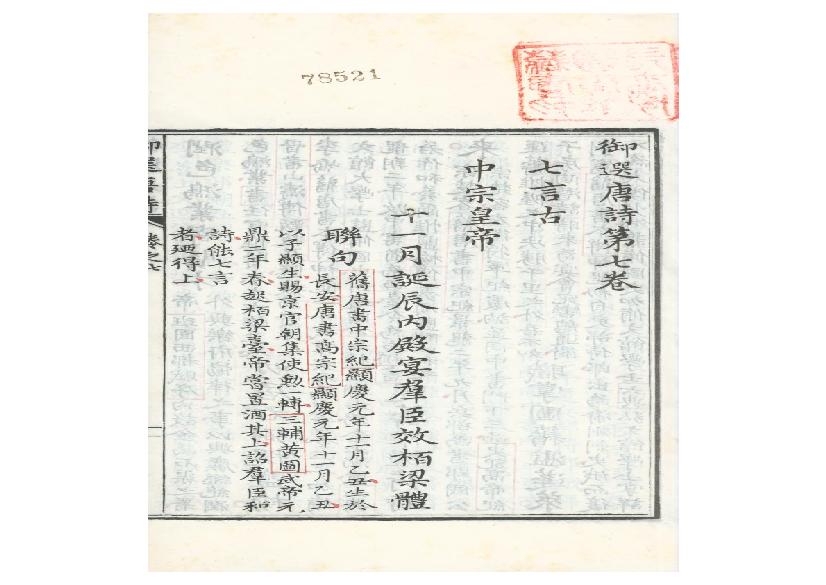 78521
御選唐詩第七卷
七言古
中宗皇帝
十一月誕辰內殿宴羣臣效栢梁體
聯句
舊唐書中宗紀顯慶元年十一月乙丑生於
長安唐書高宗紀顯慶元年十一月乙丑
以子顯生賜京官朝集使勲一轉三輔黃圖武帝元
鼎二年春起栢梁臺帝嘗置酒其上詔羣臣和
詩能七言
者廼得上
御選唐詩
卷之七
一